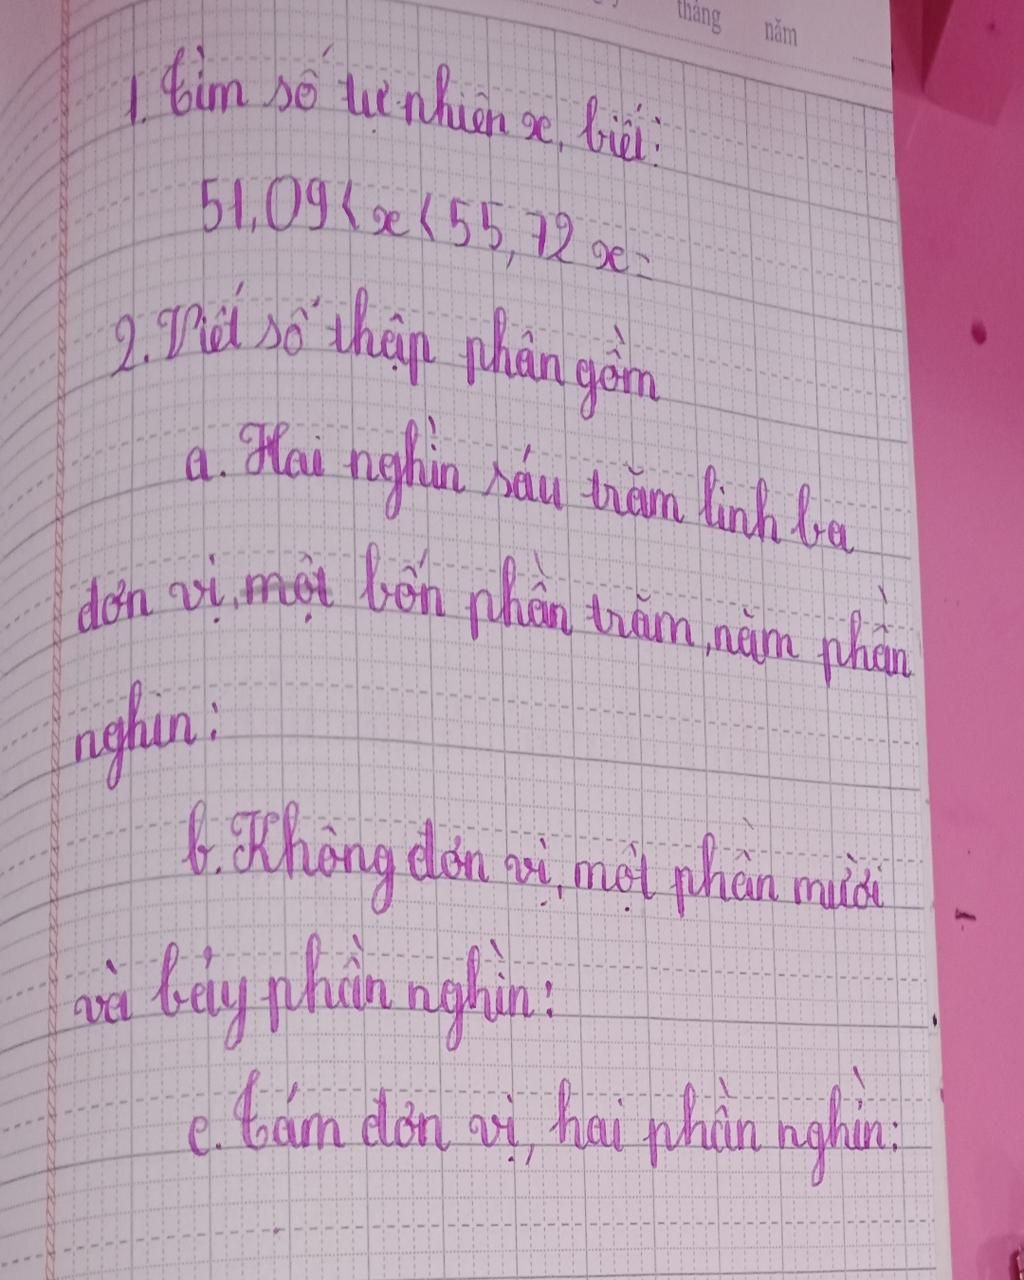 tháng năm
1. Tìm số tự nhiên x, biết:
51,09 < x < 55,72 x =
2. Viết số thập phân gồm
a. Hai nghìn sáu trăm linh ba
đơn vị, một bốn phần trăm, năm phần
nghìn:
b. Không đơn vị, một phần mười
và bảy phần nghìn:
c. Tám đơn vị, hai phần nghìn: